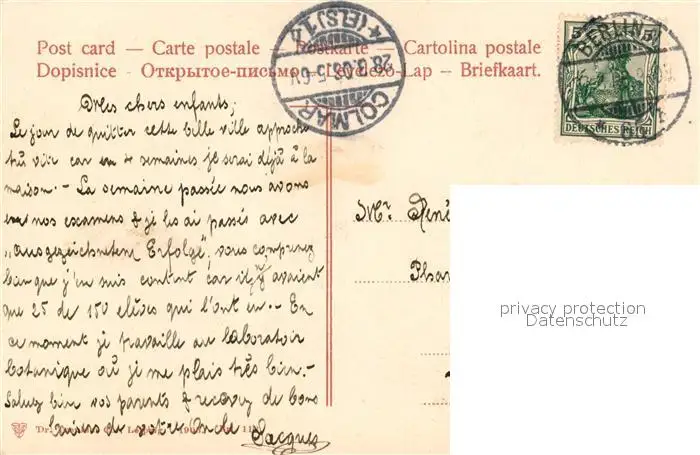 Post card — Carte postale — Postkarte — Cartolina postale
Dopisnice — Открытое-письмо — Levelezö-Lap — Briefkaart.
COLMAR
*(ELS) 1 *
BERLIN
5
5
DEUTSCHES REICH
Mes chers enfants,
Le jour de quitter cette belle ville approche
très vite car en 4 semaines je serai déjà à la
maison. - La semaine passée nous avons
eu nos examens & je les ai passés avec
„ausgezeichnetem Erfolge", vous comprenez
bien que j'en suis content car il n'y avaient
que 25 de 150 elèves qui l'ont eu. - En
ce moment je travaille au laboratoir
botanique où je me plais très bien. -
Saluez bien vos parents & recevez de bons
baisers de votre Oncle Jacques
Mr. René
Phar
privacy protection
Datenschutz